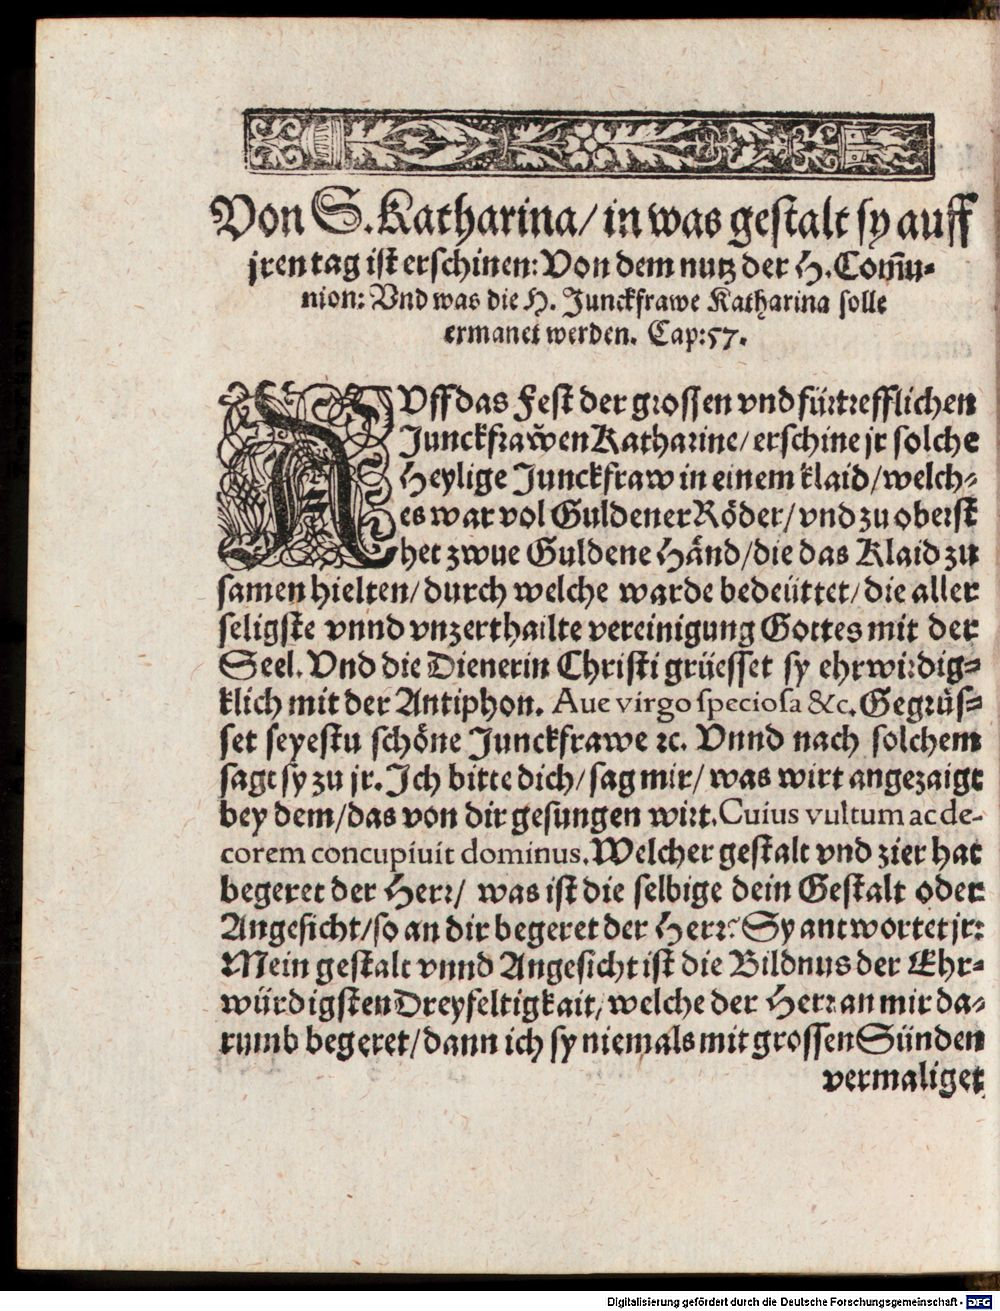 Von S. Katharina/ in was gestalt sy auff
jren tag ist erschinen: Von dem nutz der H. Com̃u-
nion: Vnd was die H. Junckfrawe Katharina solle
ermanet werden. Cap: 57.
AVff das Fest der grossen vnd fürtrefflichen
Junckfraw̃en Katharine/ erschine jr solche
Heylige Junckfraw in einem klaid/ welch-
es war vol Guldener Röder/ vnd zu oberst
het zwue Guldene Händ/ die das Klaid zu
samen hielten/ durch welche warde bedeüttet/ die aller
seligste vnnd vnzerthailte vereinigung Gottes mit der
Seel. Vnd die Dienerin Christi grüesset sy ehrwirdig-
klich mit der Antiphon. Aue virgo speciosa &c. Gegrüs-
set seyestu schöne Junckfrawe ꝛc. Vnnd nach solchem
sagt sy zu jr. Ich bitte dich/ sag mir/ was wirt angezaigt
bey dem/ das von dir gesungen wirt. Cuius vultum ac de-
corem concupiuit dominus. Welcher gestalt vnd zier hat
begeret der Herr/ was ist die selbige dein Gestalt oder
Angesicht/ so an dir begeret der Herr? Sy antwortet jr:
Mein gestalt vnnd Angesicht ist die Bildnus der Ehr-
würdigsten Dreyfeltigkait/ welche der Herr an mir da-
rumb begeret/ dann ich sy niemals mit grossen Sünden
vermaliget
Digitalisierung gefördert durch die Deutsche Forschungsgemeinschaft - DFG